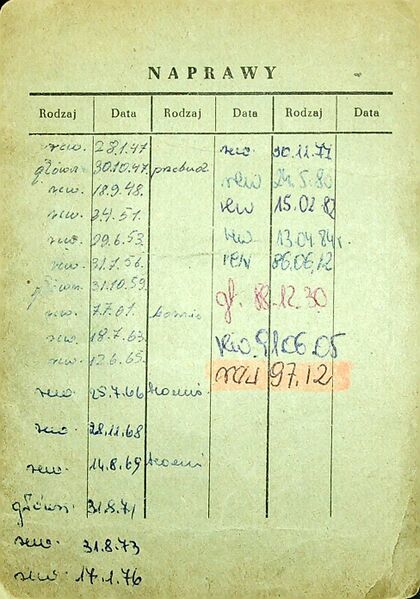 NAPRAWY
Rodzaj Data Rodzaj Data Rodzaj Data
rew. 28.1.47
główn. 30.10.47 przebud.
rew. 18.9.48.
rew. 2.4.51.
rew. 29.6.53.
rew. 31.7.56.
główn. 31.10.59.
rew. 7.7.61.
rew. 18.7.63.
rew. 12.6.65.
rew. 25.7.66
rew. 28.11.68
rew. 14.8.69
główn. 31.8.71
rew. 31.8.73
rew. 17.1.76
rew. 30.11.77
rew 24.5.80
rew 15.02.82
rew. 13.04.84r.
rew 86.06.12
gł. 88.12.30
rew. 91.06.05
rew 97.12